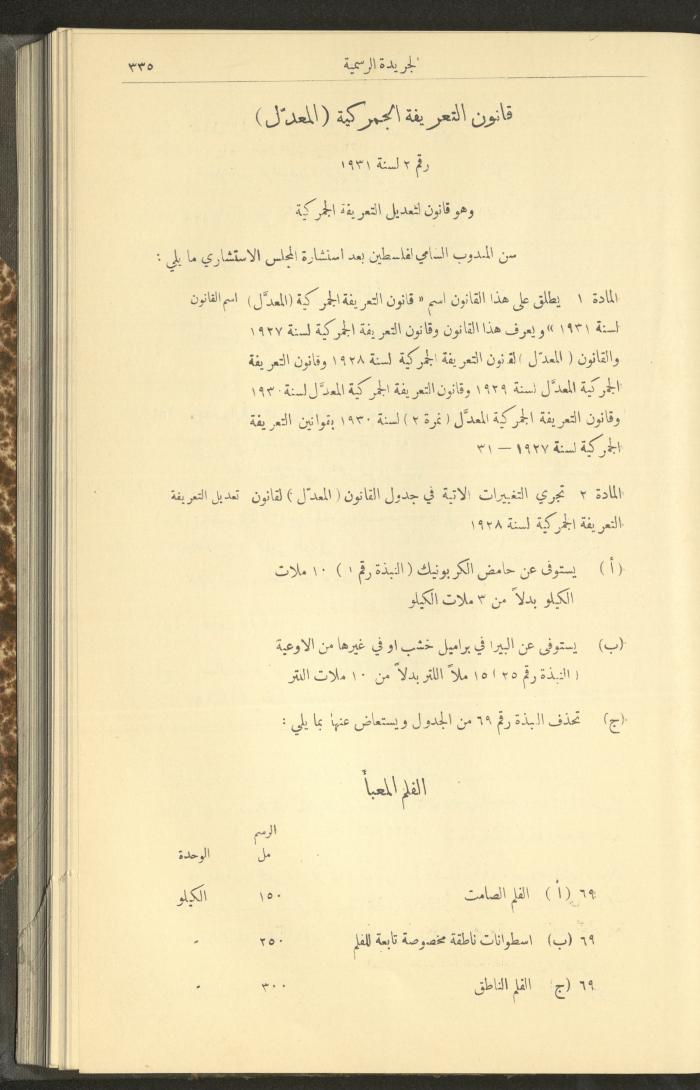 الجريدة الرسمية ٣٣٥
قانون التعريفة الجمركية (المعدّل)
رقم ٢ لسنة ١٩٣١
وهو قانون لتعديل التعريفة الجمركية
سن المندوب السامي لفلسطين بعد استشارة المجلس الاستشاري ما يلي :
المادة ١ يطلق على هذا القانون اسم « قانون التعريفة الجمركية (المعدَّل) اسم القانون
لسنة ١٩٣١ » ويعرف هذا القانون وقانون التعريفة الجمركية لسنة ١٩٢٧
والقانون ( المعدّل ) لقانون التعريفة الجمركية لسنة ١٩٢٨ وقانون التعريفة
الجمركية المعدَّل لسنة ١٩٢٩ وقانون التعريفة الجمركية المعدَّل لسنة ١٩٣٠
وقانون التعريفة الجمركية المعدَّل ( نمرة ٢ ) لسنة ١٩٣٠ بقوانين التعريفة
الجمركية لسنة ١٩٢٧ — ٣١
المادة ٢ تجري التغييرات الاتية في جدول القانون ( المعدّل ) لقانون تعديل التعريفة
التعريفة الجمركية لسنة ١٩٢٨
(أ) يستوفى عن حامض الكربونيك ( النبذة رقم ١ ) ١٠ ملات
الكيلو بدلاً من ٣ ملات الكيلو
(ب) يستوفى عن البيرا في براميل خشب او في غيرها من الاوعية
( النبذة رقم ٢٥ ) ١٥ ملاً اللتر بدلاً من ١٠ ملات اللتر
(ج) تحذف النبذة رقم ٦٩ من الجدول ويستعاض عنها بما يلي :
الفلم المعبأ
الرسم
مل الوحدة
٦٩ (أ) الفلم الصامت ١٥٠ الكيلو
٦٩ (ب) اسطوانات ناطقة مخصوصة تابعة للفلم ٢٥٠ "
٦٩ (ج) الفلم الناطق ٣٠٠ "